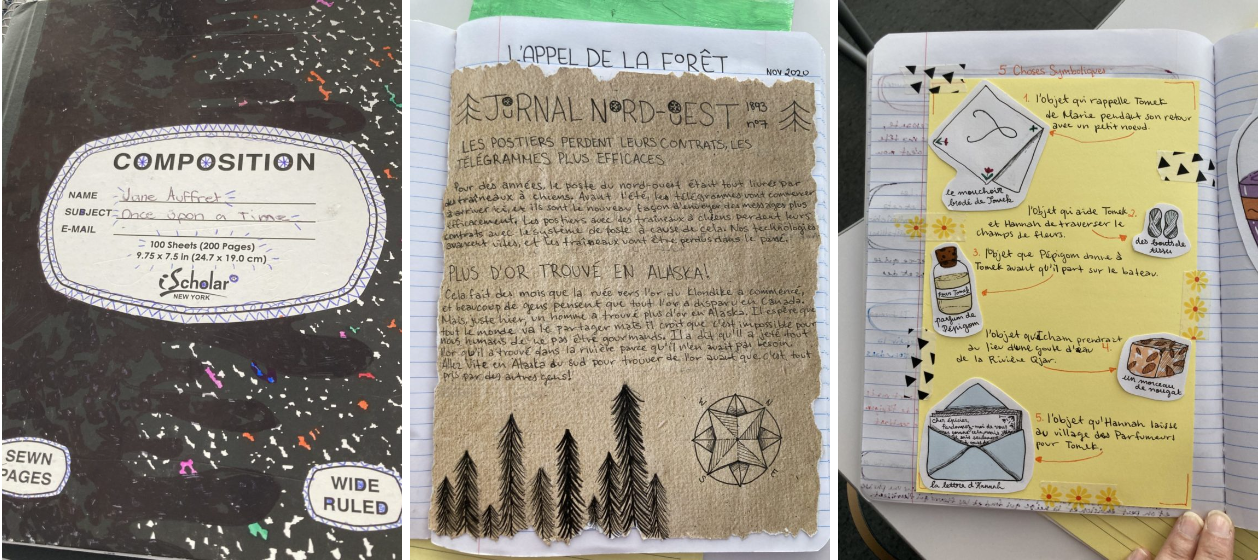 COMPOSITION
NAME Jane Auffret
SUBJECT Once upon a Time
E-MAIL
100 Sheets (200 Pages)
9.75 x 7.5 in (24.7 x 19.0 cm)
iScholar
NEW YORK
SEWN
PAGES
WIDE
RULED
L'APPEL DE LA FORÊT
NOV 2020
JOURNAL NORD-OUEST 1893
nº7
LES POSTIERS PERDENT LEURS CONTRATS, LES
TÉLÉGRAMMES PLUS EFFICACES
Pour des années, le poste du nord-ouest était tout livrés par
traîneaux à chiens. Avant l'été, les télégrammes vont commencer
à arriver ici, et ils sont la nouvelle façon d'envoyer des messages plus
efficacement. Les postiers avec des traîneaux à chiens perdent leurs
contrats avec le système de poste à cause de cela. Nos technologies
avancent vites, et les traîneaux vont être perdus dans le passé.
PLUS D'OR TROUVÉ EN ALASKA!
Cela fait des mois que la ruée vers l'or du Klondike a commencé,
et beaucoup de gens pensent que tout l'or a disparu en Canada.
Mais juste hier, un homme a trouvé plus d'or en Alaska. Il espère que
tout le monde va le partager mais il croit que c'est impossible pour
nous humans de ne pas être gourmands. Il a dit qu'il a jeté tout
l'or qu'il a trouvé dans la rivière parce qu'il n'en avait pas besoin.
Allez vite en Alaska du sud pour trouver de l'or avant que c'est tout
pris par des autres gens!
N
E
S
5 Choses Symboliques
1. l'objet qui rappelle Tomek
de Marie pendant son retour
avec un petit noeud.
le mouchoir
brodé de Tomek
l'objet qui aide Tomek 2.
et Hannah de traverser le
champs de fleurs.
des bouts de
tissu
3. l'objet que Pépigom donne à
Tomek avant qu'il part sur le bateau.
Pour Tomek
parfum de
Pépigom
l'objet qu'Icham prendrait
au lieu d'une goute d'eau 4.
de la Rivière Qjar.
un morceau
de nougat
5. l'objet qu'Hannah laisse
au village des Parfumeurs
pour Tomek.
cher épicier,
Pardonnez-moi de vous
la lettre d'Hannah